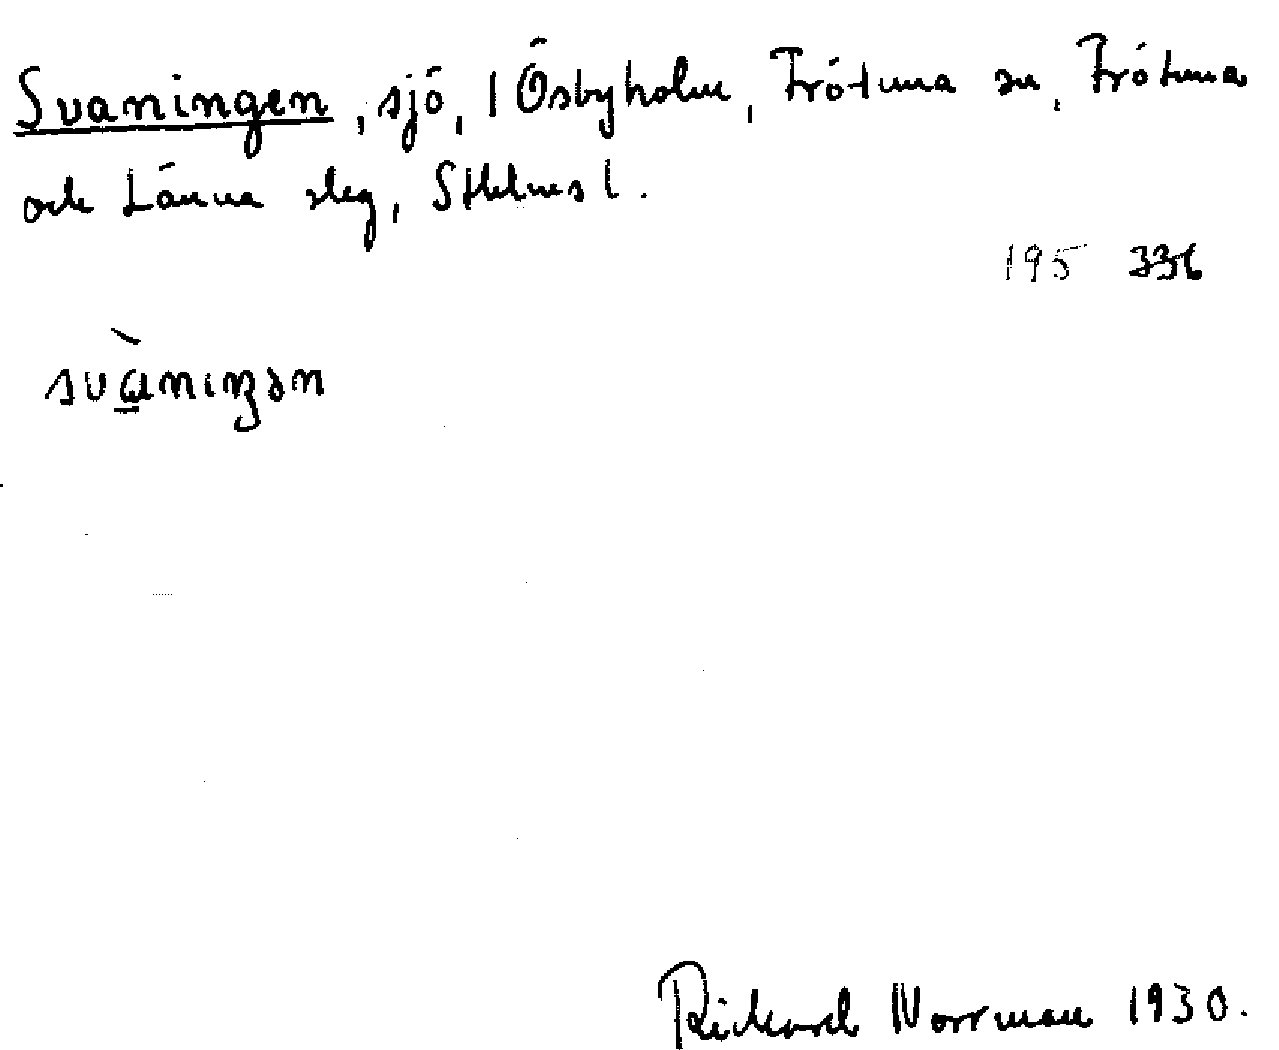 Svaningen, sjö, 1 Ösbyholm, Frötuna sn, Frötuna
och Länna slg, Sthlms l.
195 336
svàniŋən
Rickard Norrman 1930.